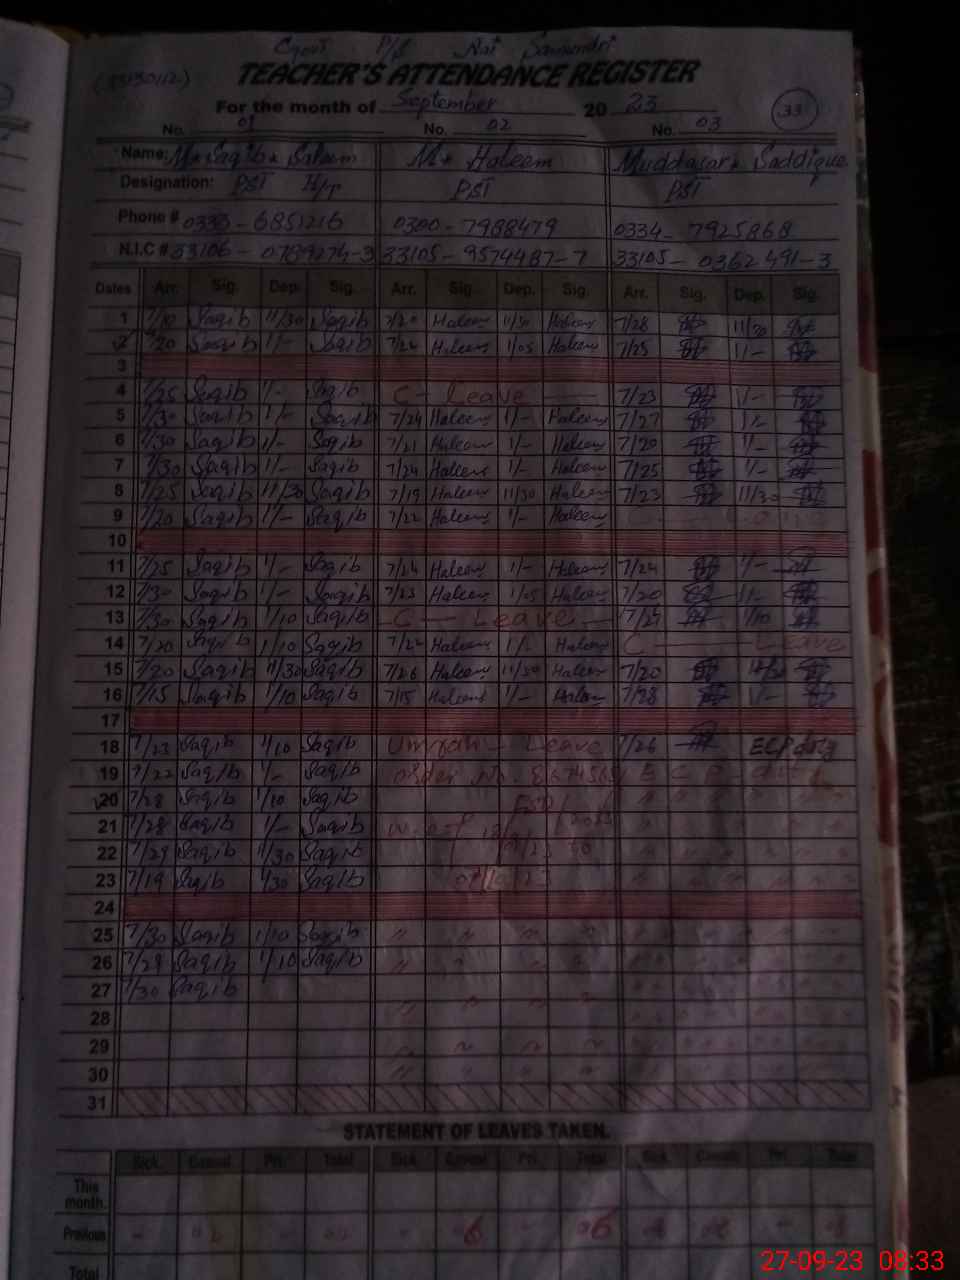 Govt P/S Rai Samundri
TEACHER'S ATTENDANCE REGISTER
For the month of September 20 23
33
No. 01 No. 02 No. 03
Name: M. Saqib Saleem M. Haleem Muddasar Saddique
Designation: PST H/T PST PST
Phone # 0333-6851216 0300-7988479 0334-7925868
N.I.C # 33106-0789274-3 33105-9574487-7 33105-0362491-3
Dates Arr. Sig. Dep. Sig. Arr. Sig. Dep. Sig. Arr. Sig. Dep. Sig.
1 7/10 Saqib 11/30 Saqib 7/20 Haleem 11/30 Haleem 7/28 11/30
2 7/20 Saqib 1/- Saqib 7/24 Haleem 1/05 Haleem 7/25 1/-
3
4 7/25 Saqib 1/- Saqib C - Leave 7/23 1/-
5 7/30 Saqib 1/- Saqib 7/24 Haleem 1/- Haleem 7/27 1/-
6 7/30 Saqib 1/- Saqib 7/21 Haleem 1/- Haleem 7/20 1/-
7 7/30 Saqib 1/- Saqib 7/24 Haleem 1/- Haleem 7/25 1/-
8 7/25 Saqib 11/30 Saqib 7/19 Haleem 11/30 Haleem 7/23 11/30
9 7/20 Saqib 1/- Saqib 7/22 Haleem 1/- Haleem
10
11 7/25 Saqib 1/- Saqib 7/24 Haleem 1/- Haleem 7/24 1/-
12 7/30 Saqib 1/- Saqib 7/23 Haleem 1/05 Haleem 7/20 1/-
13 7/30 Saqib 1/10 Saqib C - Leave 7/27 1/10
14 7/20 Saqib 1/10 Saqib 7/22 Haleem 1/- Haleem C - Leave
15 7/20 Saqib 11/30 Saqib 7/26 Haleem 11/30 Haleem 7/20
16 7/15 Saqib 1/10 Saqib 7/15 Haleem 1/- Haleem 7/28 1/-
17
18 7/23 Saqib 1/10 Saqib Umrah - Leave 7/26 ECP duty
19 7/22 Saqib 1/- Saqib order No. E C P - duty
20 7/28 Saqib 1/10 Saqib
21 7/28 Saqib 1/- Saqib w.e.f
22 7/29 Saqib 1/30 Saqib to
23 7/19 Saqib 1/30 Saqib
24
25 7/30 Saqib 1/10 Saqib " " " "
26 7/29 Saqib 1/10 Saqib " " " "
27 7/30 Saqib
28
29
30
31
STATEMENT OF LEAVES TAKEN.
Sick. Casual Pri. Total Sick. Casual Pri. Total Sick. Casual Pri. Total
This month.
Previous 06 06
Total
27-09-23 08:33